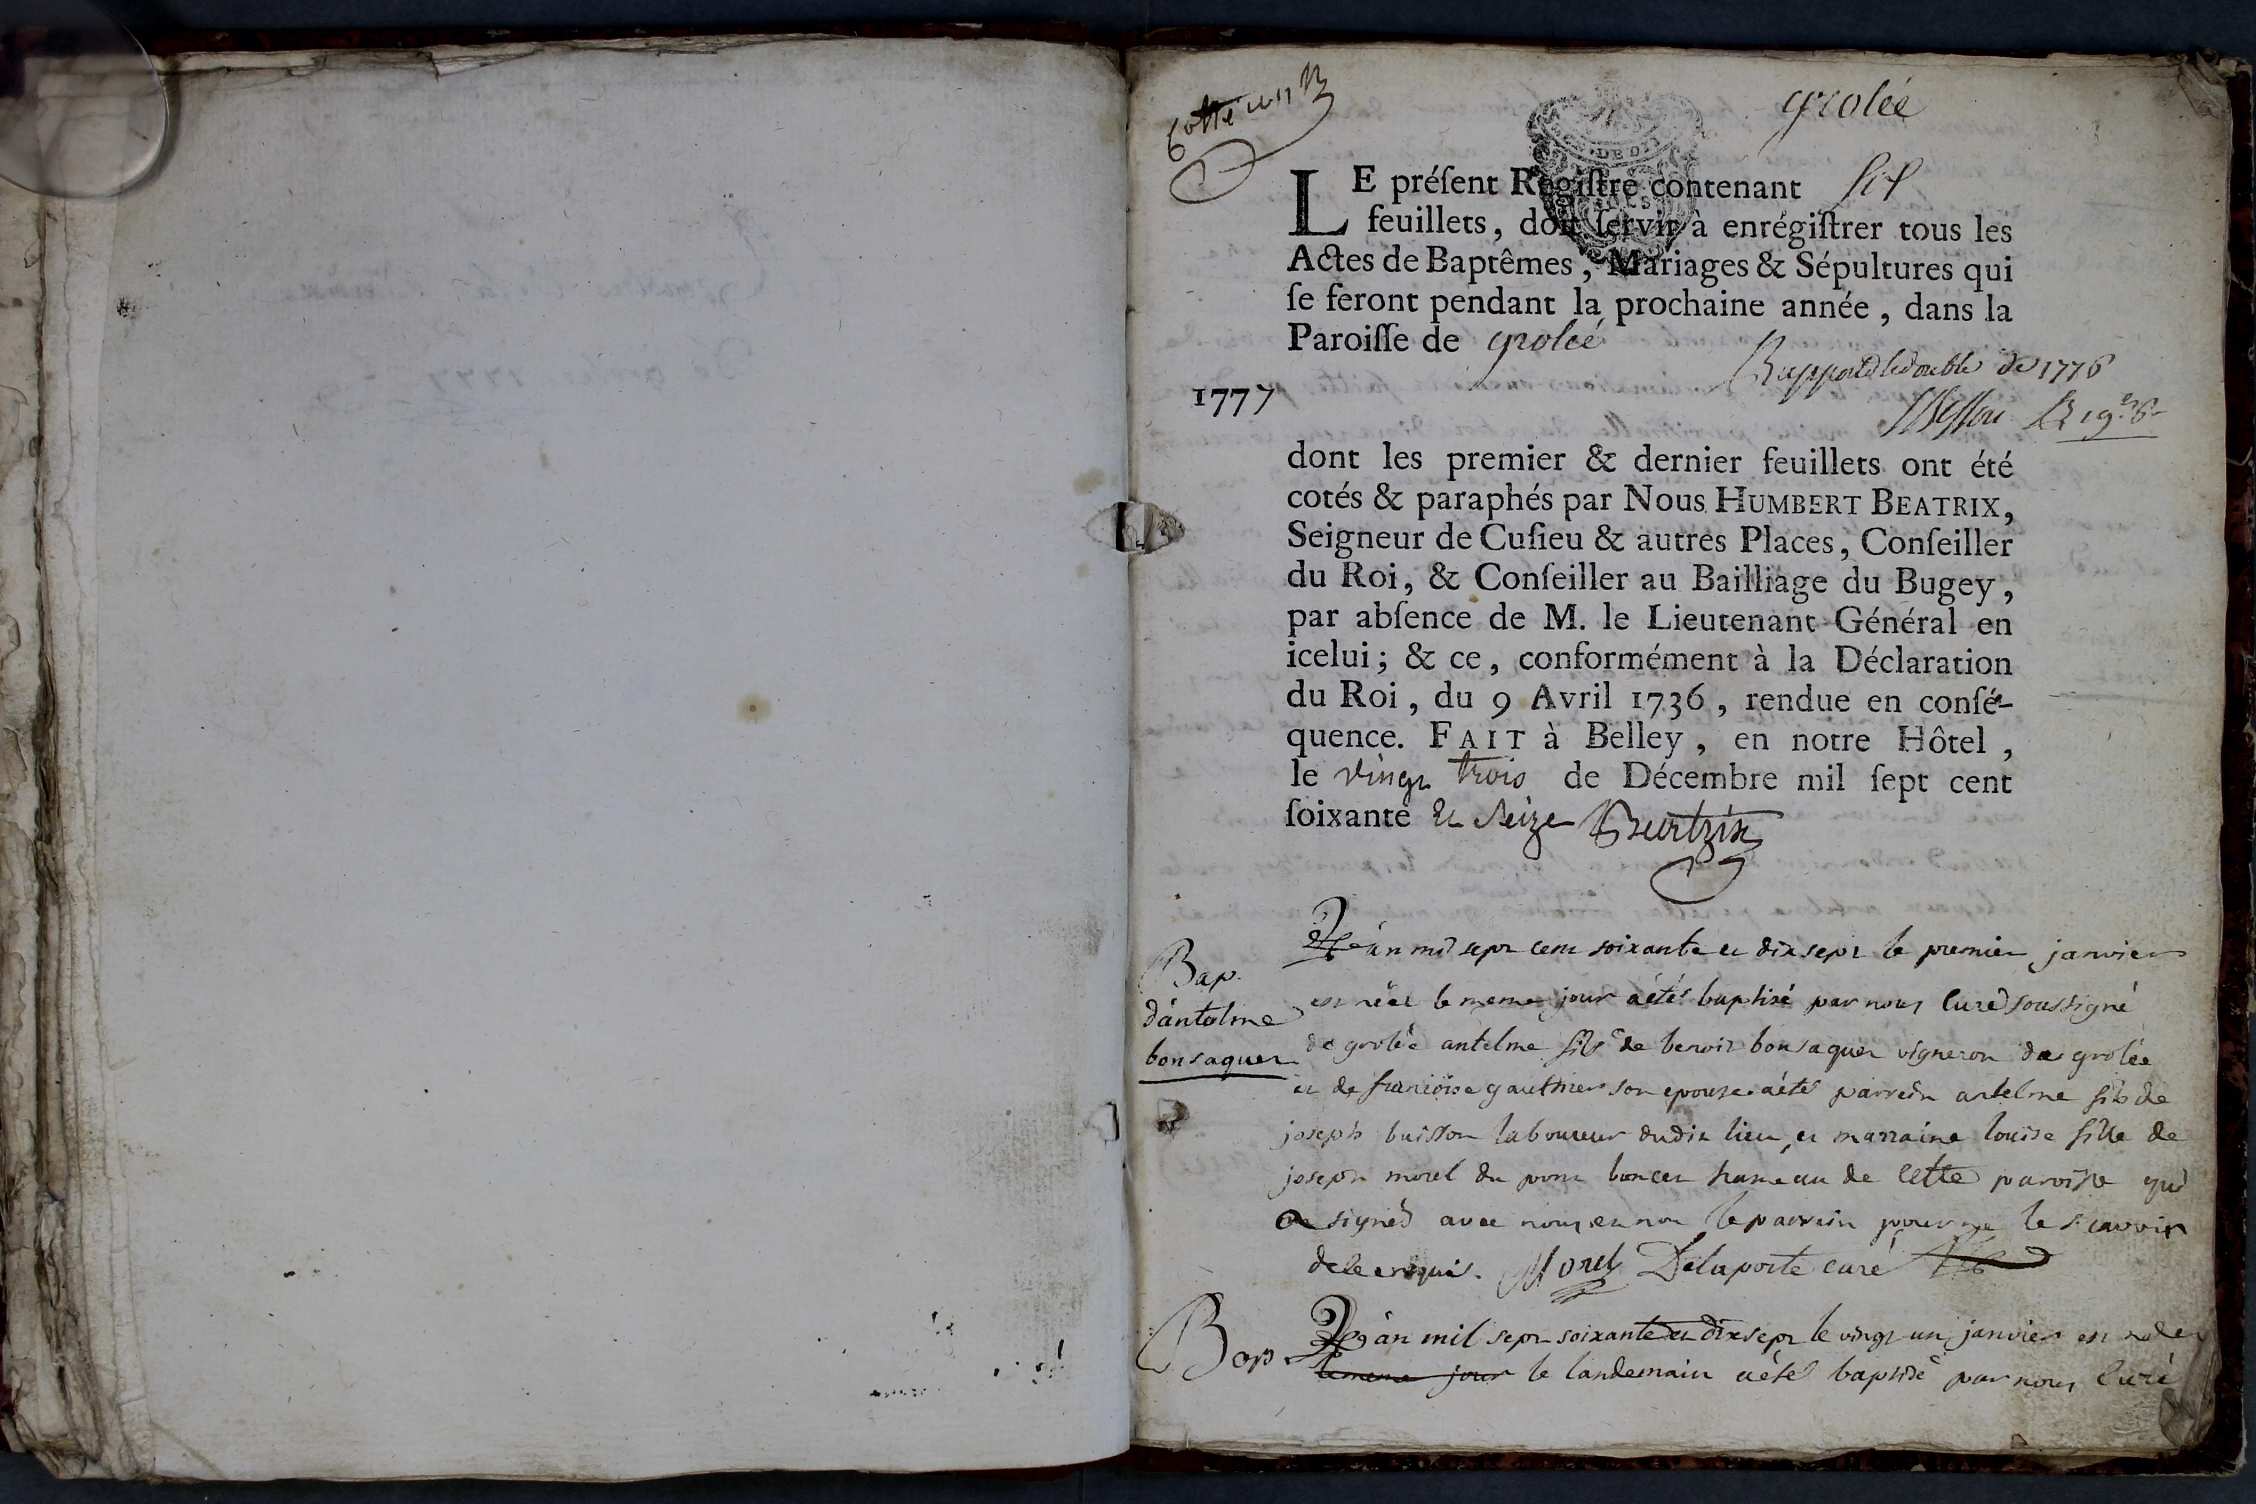 grolée
Cotté un
LE préſent Regiſtre contenant six
feuillets, doit ſervir à enrégiſtrer tous les
Actes de Baptêmes, Mariages & Sépultures qui
ſe feront pendant la prochaine année, dans la
Paroiſſe de grolée
Rapporté le double de 1776
1777
dont les premier & dernier feuillets ont été
cotés & paraphés par Nous HUMBERT BEATRIX,
Seigneur de Cuſieu & autres Places, Conſeiller
du Roi, & Conſeiller au Bailliage du Bugey,
par abſence de M. le Lieutenant Général en
icelui; & ce, conformément à la Déclaration
du Roi, du 9 Avril 1736, rendue en conſé-
quence. FAIT à Belley, en notre Hôtel,
le vingt trois de Décembre mil ſept cent
ſoixante et seize Beatrix
Bap.
d'antelme
bonsaquet
L'an mil sept cent soixante et dix sept le premier janvier
est né et le meme jour a été baptisé par nous curé soussigné
de grolée antelme fils de benoit bonsaquet vigneron de grolée
et de francoise gauthier son epouse a été parrein antelme fils de
joseph buisson laboureur dudit lieu, et marraine louise fille de
joseph morel du pont bancet hameau de cette paroisse qui
a signé avec nous et non le parrein pour ne le scavoir
de ce enquis. Morel Delaporte curé
Bap. L'an mil sept soixante et dix sept le vingt un janvier est né et
le meme jour le landemain a été baptisé par nous curé